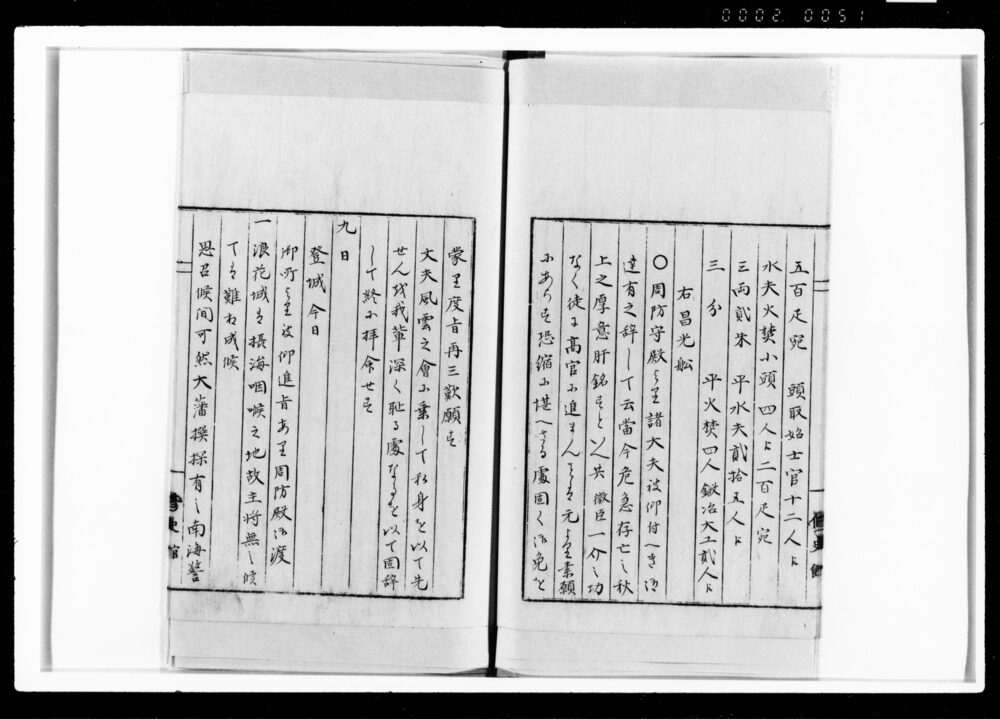 0002 0051
五百疋宛　頭取始士官十二人ゟ
水夫火焚小頭四人ゟ二百疋宛
三両貳朱　平水夫貳拾五人ゟ
三分　平火焚四人鍛冶大工貳人ゟ
右昌光舩
〇周防守殿ゟ諸大夫被仰付へき御
達有之辞して云當今危急存亡之秋
上之厚意肝銘すと以へ共微臣一介之功
なく徒に高官に進まんこと元ゟ素願
にあらす恐縮に堪へさる處固く御免を
蒙り度旨再三歎願す
丈夫風雲之會に乗して私身を以て先
せん我輩深く恥る處なるを以て固辞
して終に拝命せす
九日
登城今日
御所ゟ被仰進旨あり周防殿御渡
一浪花城は摂海咽喉之地故主将無之候
ては難相成候
思召候間可然大藩撰採有之南海警
修史館
修史館